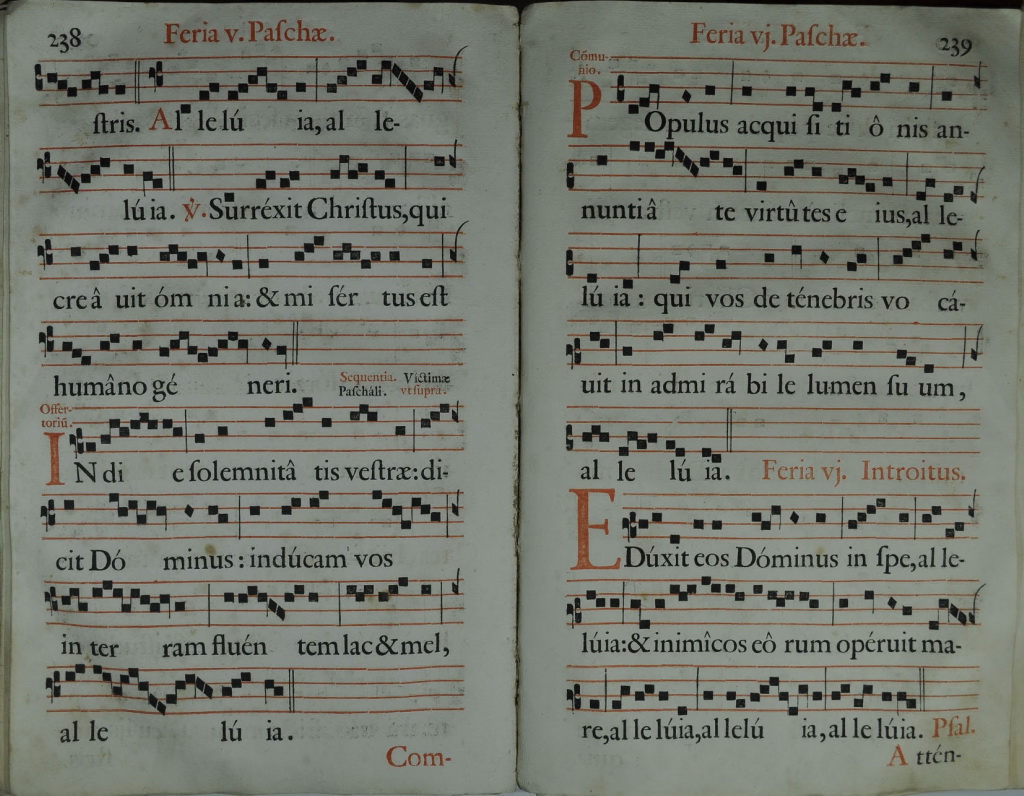 238
Feria v. Paſchæ.
ſtris. Al le lú ia, al le-
lú ia. ℣. Surréxit Chriſtus, qui
cre â uit óm ni a: & mi ſér tus eſt
humâno gé neri.
Sequentia. Víctimæ
Paſcháli. vt ſupra.
Offer-
toriũ.
IN di e ſolemnitâ tis veſtræ: di-
cit Dó minus: indúcam vos
in ter ram fluén tem lac & mel,
al le lú ia.
Com-
Feria vj. Paſchæ.
239
Cómu-
nio.
POpulus acqui ſi ti ô nis an-
nunti â te virtûtes e ius, al le-
lú ia: qui vos de ténebris vo cá-
uit in admi rá bi le lumen ſu um,
al le lú ia. Feria vj. Introitus.
EDúxit eos Dóminus in ſpe, al le-
lúia: & inimîcos eô rum opéruit ma-
re, al le lúia, al lelú ia, al le lúia. Pſal.
A ttén-